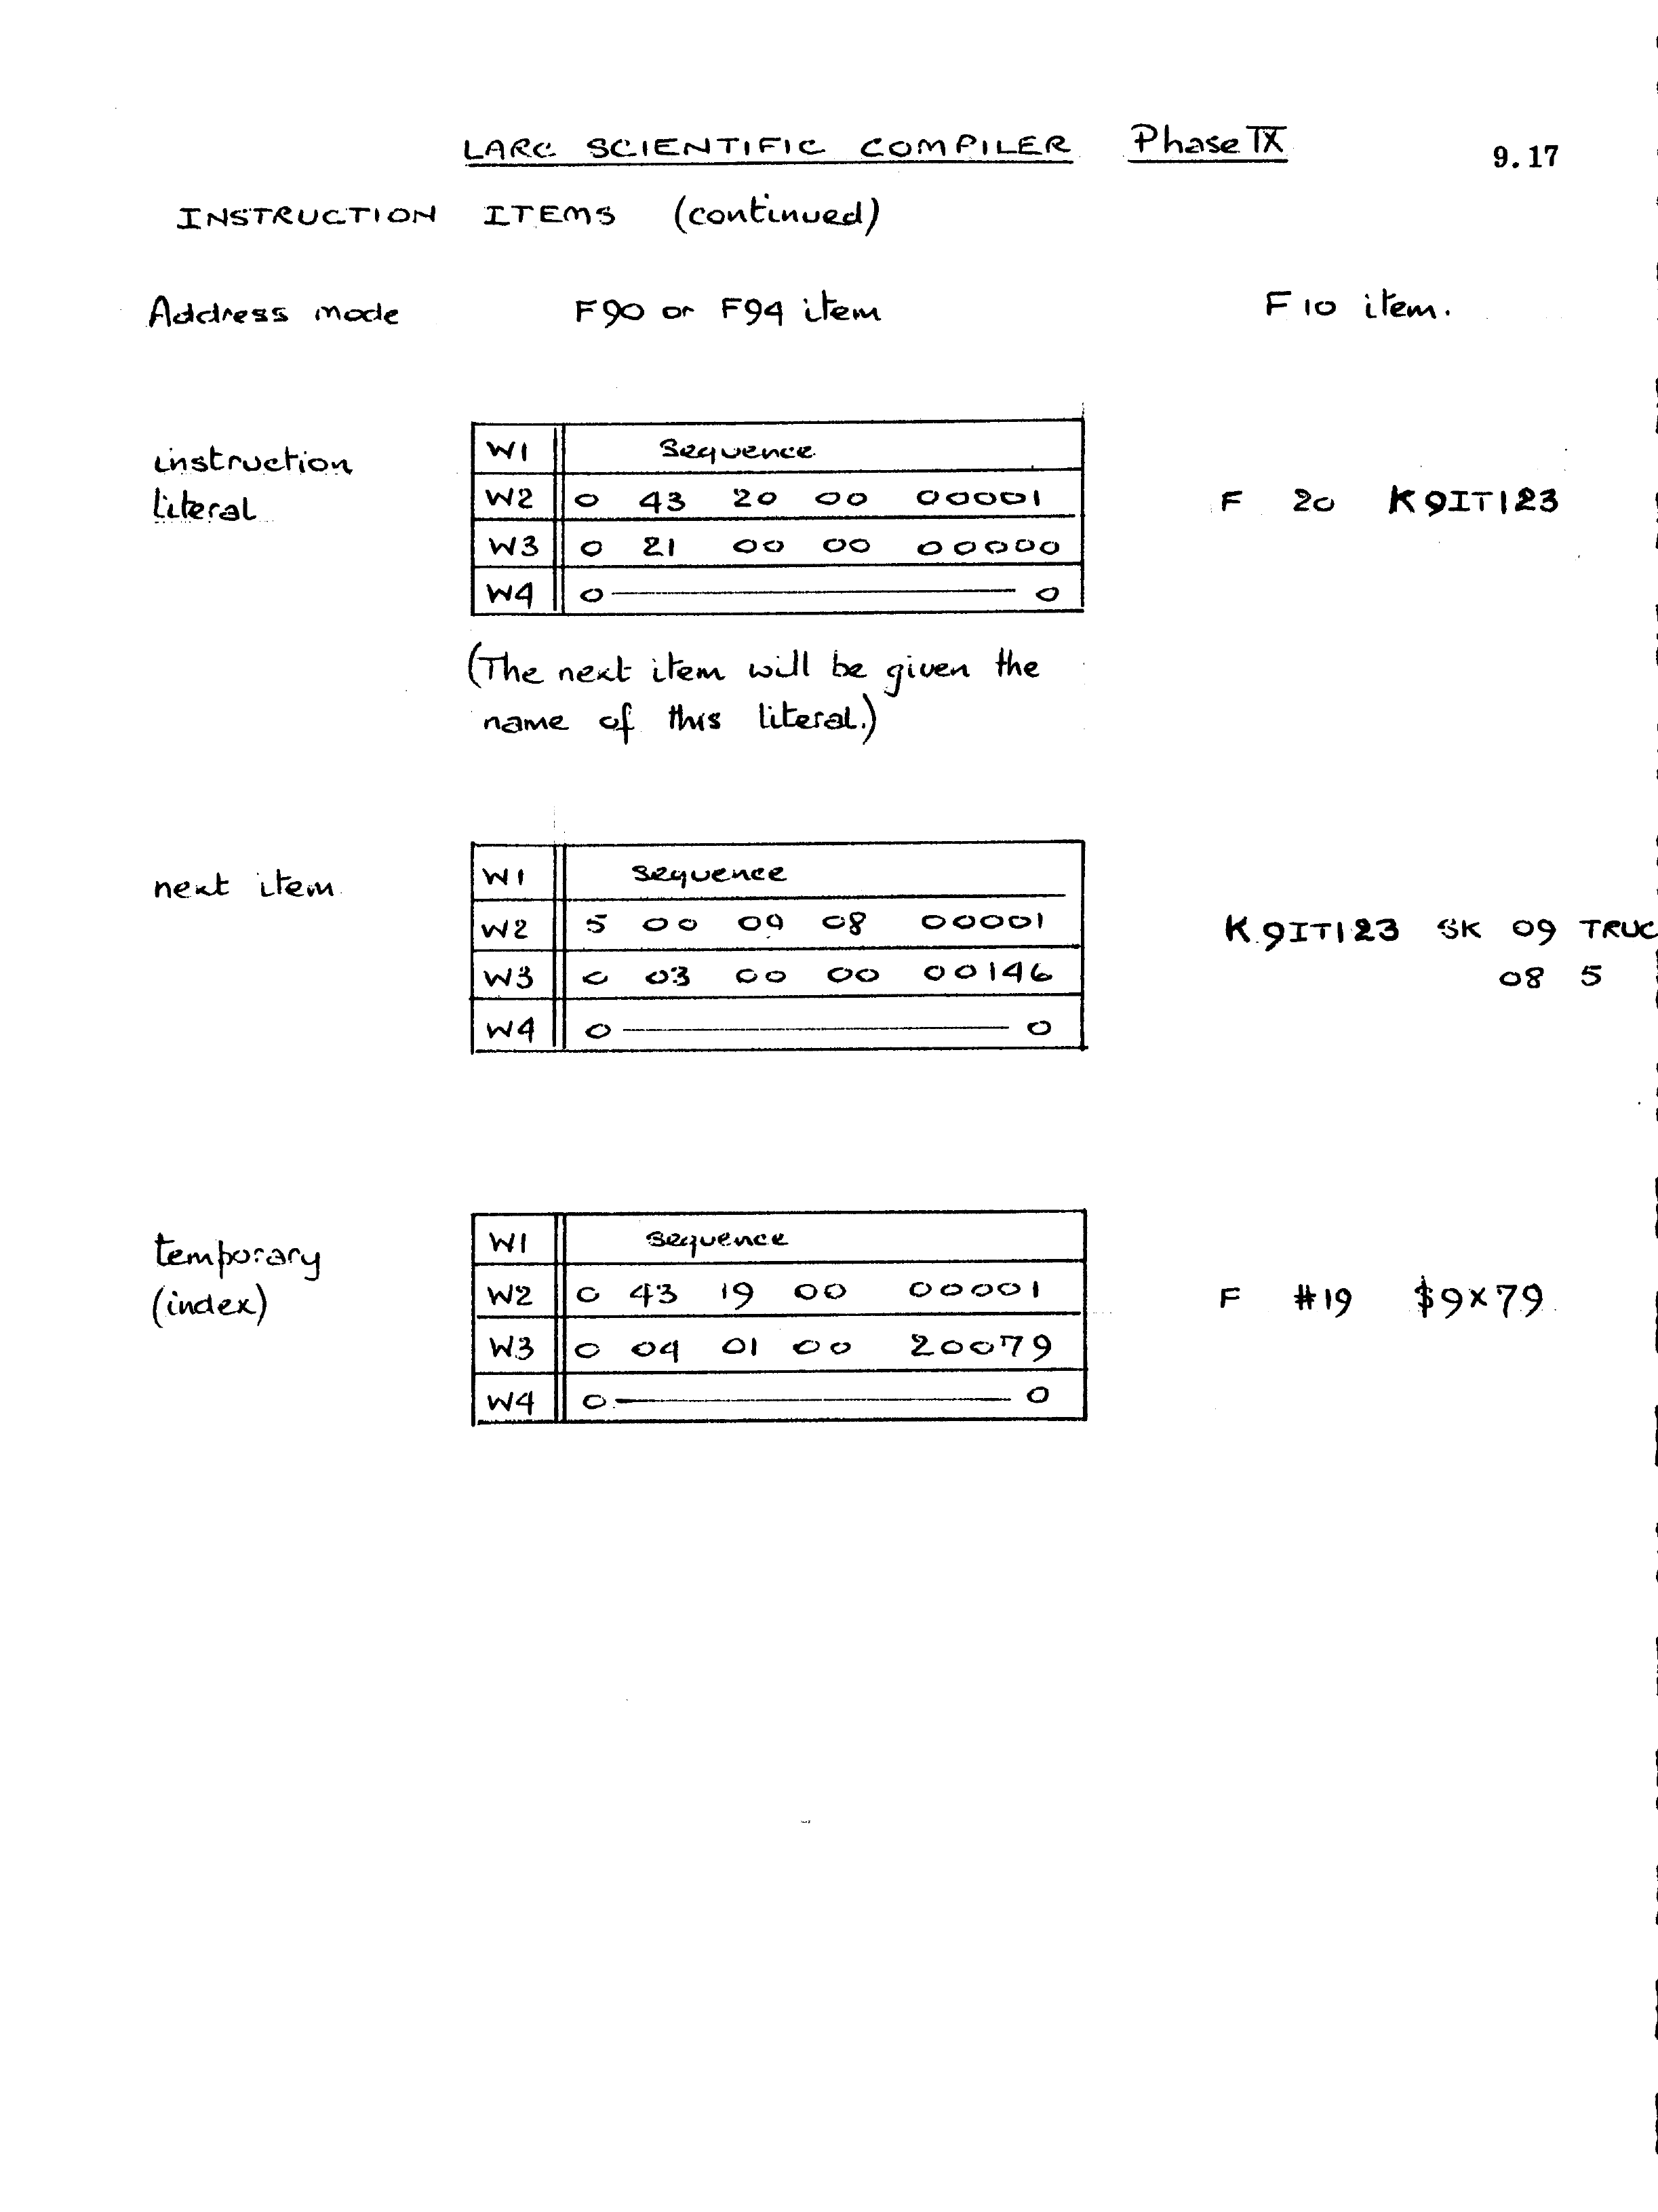 LARC SCIENTIFIC COMPILER Phase IX 9.17
INSTRUCTION ITEMS (continued)
Address mode F90 or F94 item F10 item.
instruction
literal
W1 Sequence
W2 0 43 20 00 00001 F 20 K9IT123
W3 0 21 00 00 00000
W4 0 ———— 0
(The next item will be given the
name of this literal.)
next item
W1 sequence
W2 5 00 09 08 00001 K9IT123 SK 09 TRUC
W3 0 03 00 00 00146 08 5
W4 0 ———— 0
temporary
(index)
W1 sequence
W2 0 43 19 00 00001 F #19 $9X79
W3 0 04 01 00 20079
W4 0 ———— 0